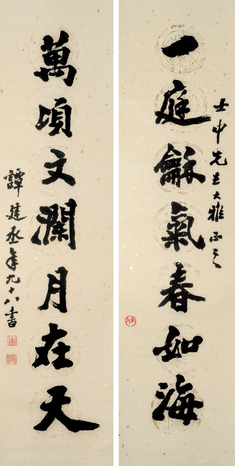 一庭龢氣春如海
壬申先生大雅正之
萬頃文瀾月在天
譚建丞年九十八書